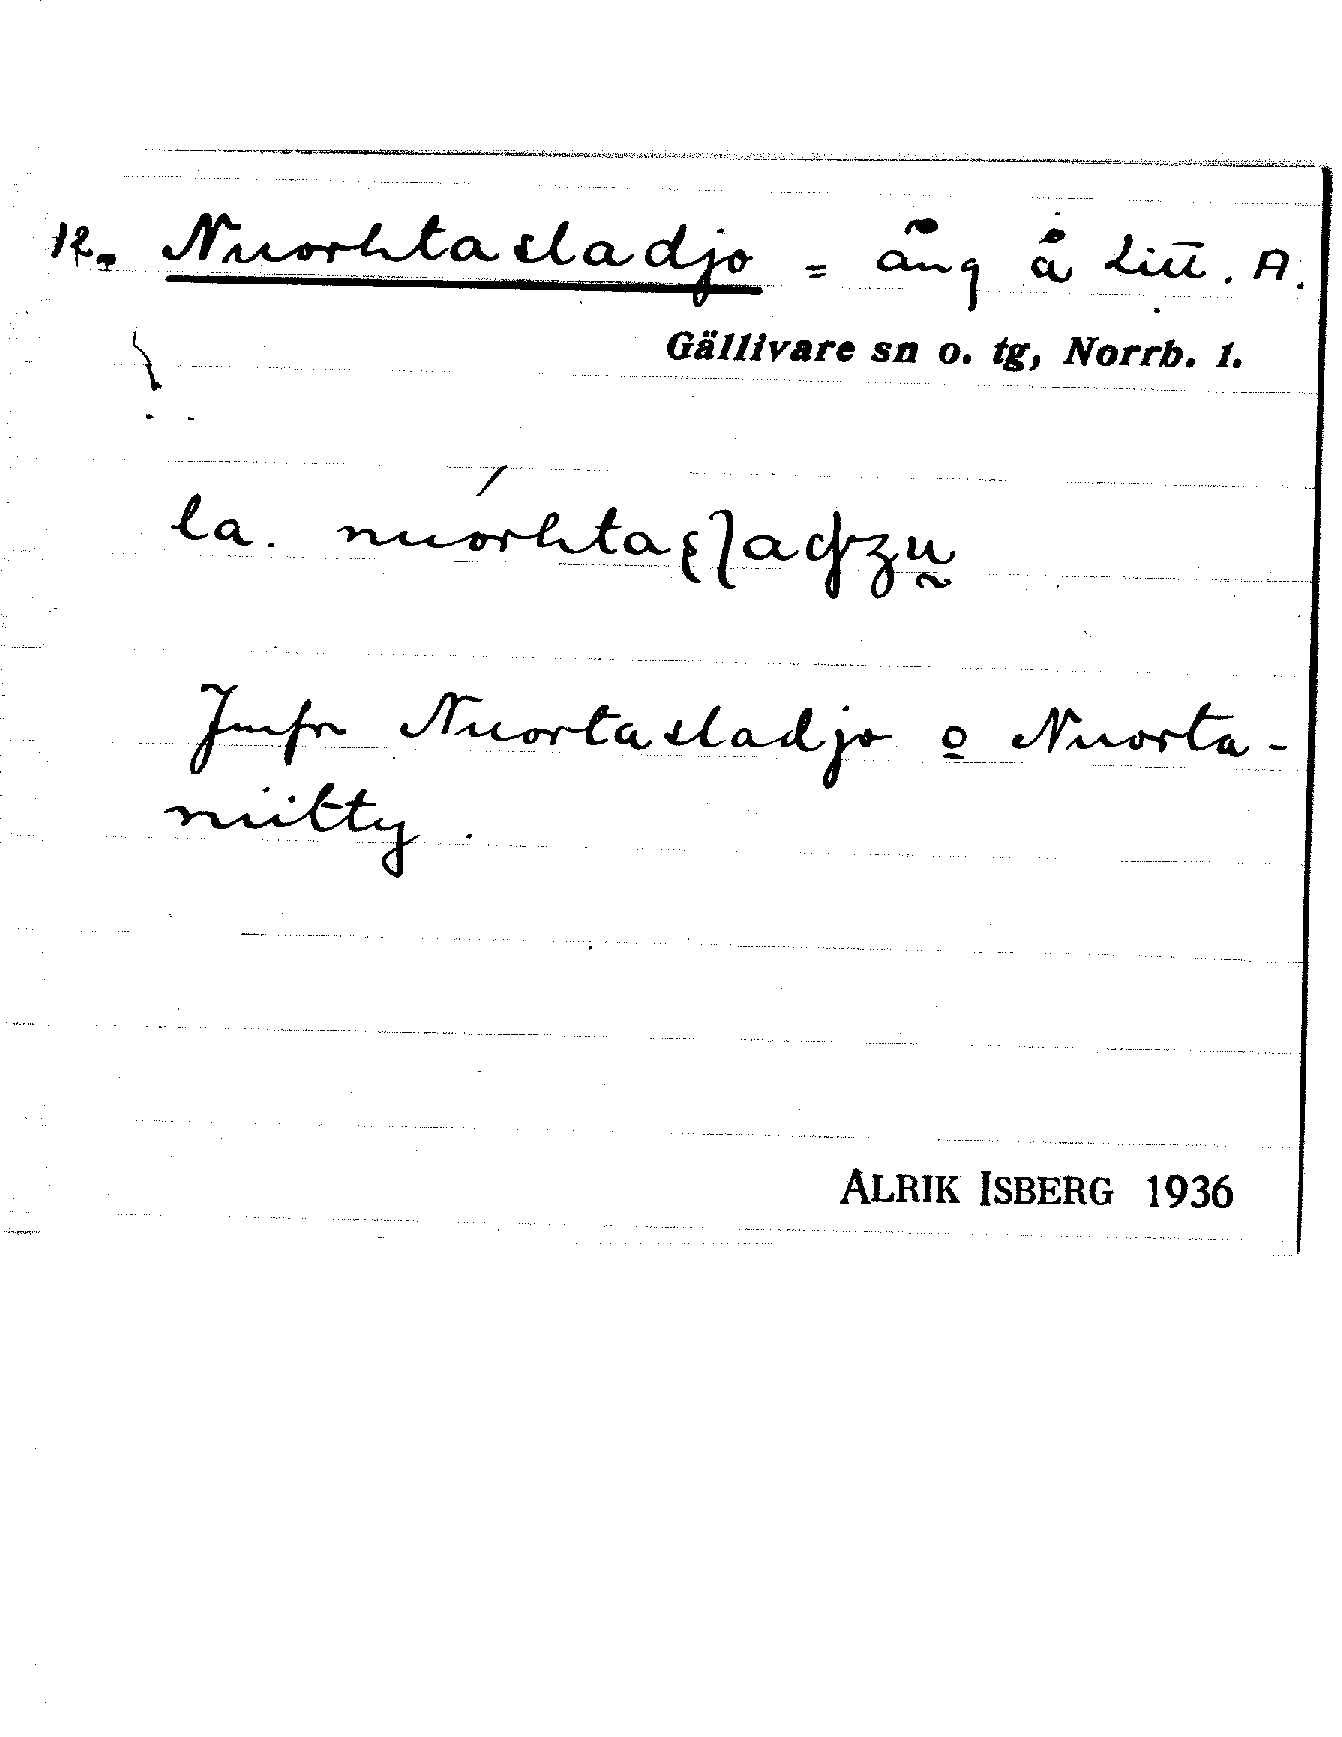 12. Nuorhtasladjo = äng å Litt. A.
Gällivare sn o. tg, Norrb. l.
la.
Jmfr Nuortasladjo o Nuorta-
niitty.
ALRIK ISBERG 1936